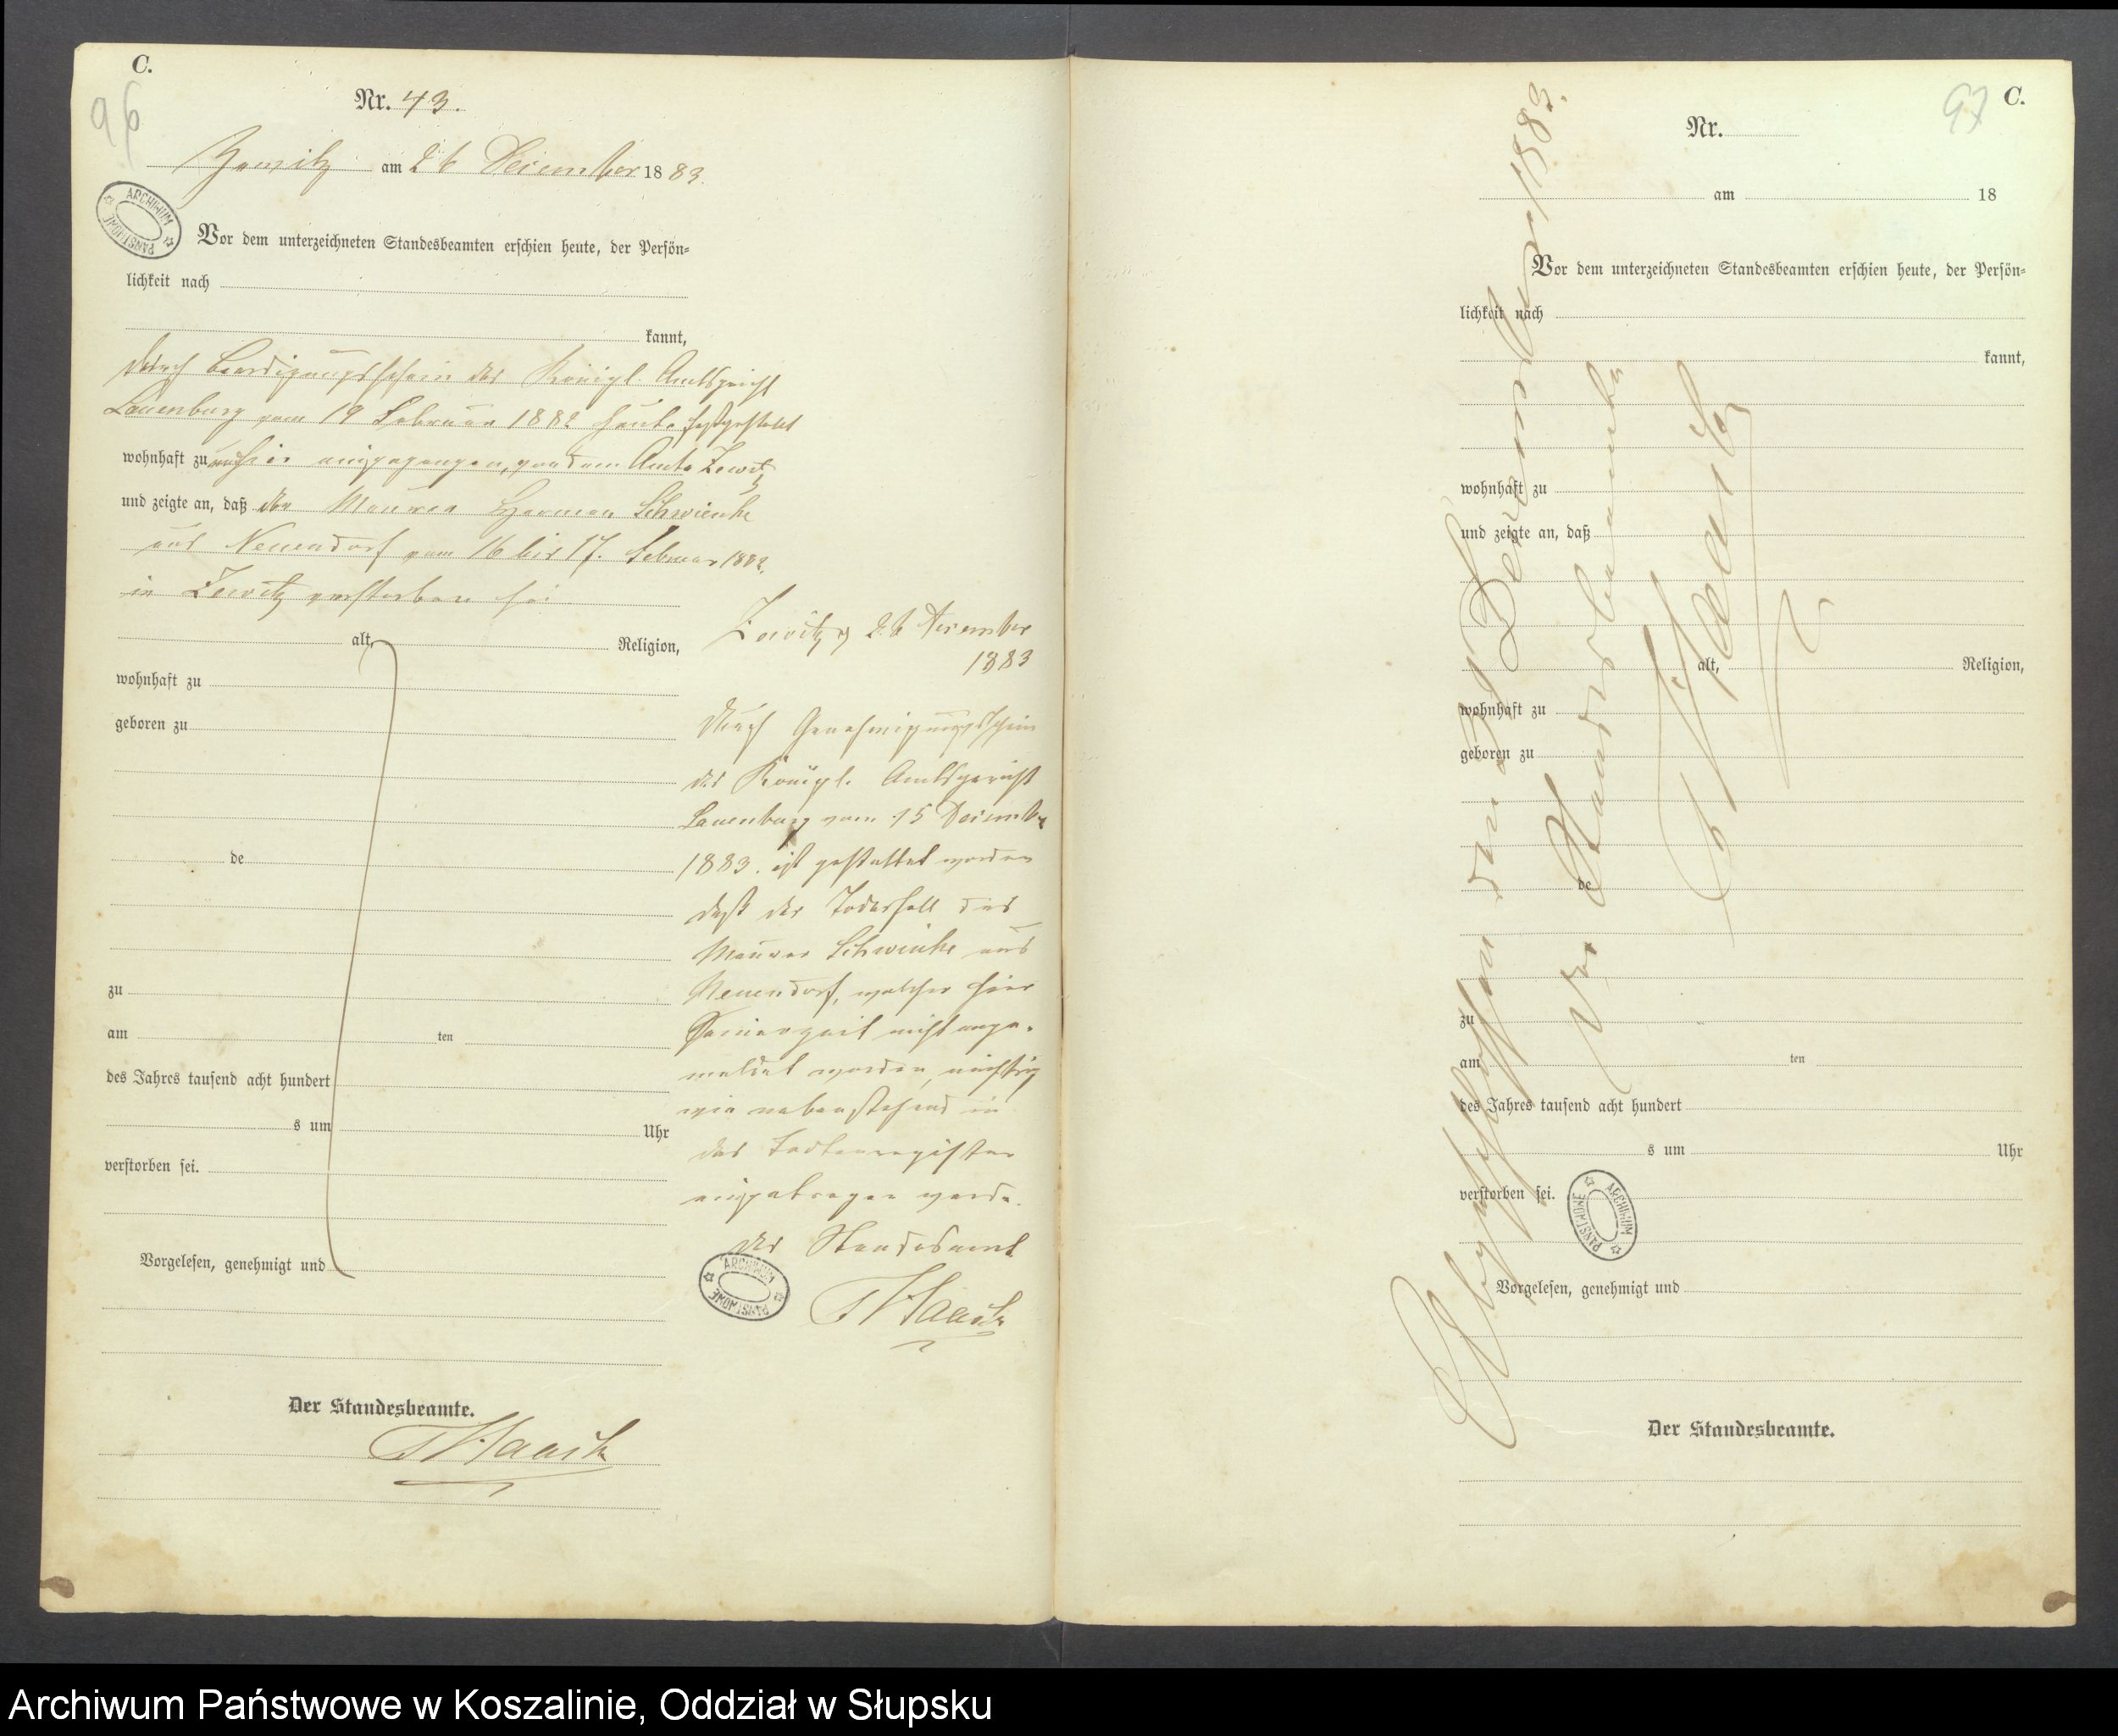 C.
96
Nr. 43.
Zewitz am 26 December 1883.
ARCHIWUM PAŃSTWOWE
Vor dem unterzeichneten Standesbeamten erschien heute, der Persön-
lichkeit nach
kannt,
durch Beerdigungsschein des Königl. Amtsgericht
Lauenburg vom 19 Februar 1882 heute festgestellt
wohnhaft zu eingegangen, von dem Amte Zewitz
und zeigte an, daß der Maurer Herman Schwichke
aus Neuendorf vom 16 bis 17. Februar 1882.
in Zewitz verstorben sei
alt, Religion,
wohnhaft zu
geboren zu
de
zu
am ten
des Jahres tausend acht hundert
s um Uhr
verstorben sei.
Vorgelesen, genehmigt und
Der Standesbeamte.
Haack
Zewitz d 26 December
1883
Durch Genehmigungsschein
des Königl. Amtsgericht
Lauenburg vom 15 December
1883. ist gestattet worden
daß der Todesfall des
Maurer Schwichke aus
Neuendorf, welcher hier
seinerzeit nicht ange-
meldet worden,
wie nebenstehend in
das Todtenregister
eingetragen werde.
Das Standesamt
Haack
ARCHIWUM PAŃSTWOWE
C.
97
Nr.
am 18
Vor dem unterzeichneten Standesbeamten erschien heute, der Persön-
lichkeit nach
kannt,
wohnhaft zu
und zeigte an, daß
alt, Religion,
wohnhaft zu
geboren zu
de
zu
am ten
des Jahres tausend acht hundert
s um Uhr
verstorben sei.
Vorgelesen, genehmigt und
Der Standesbeamte.
Abgeschlossen den December 1883.
Der Standesbeamte
Haack
ARCHIWUM PAŃSTWOWE
Archiwum Państwowe w Koszalinie, Oddział w Słupsku